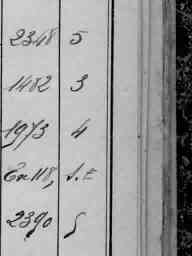 2348 5
1482 3
1973 4
Ca 118,
2390 5